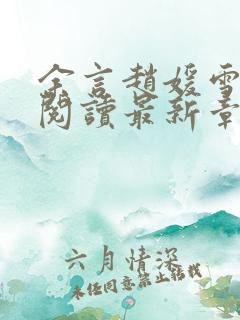 余言趙媛雪
閱讀最新章
六月情深
未经同意禁止转载